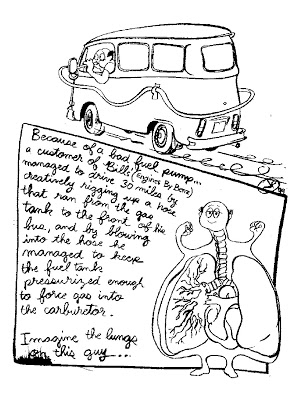 Because of a bad fuel pump...
a customer of Bill's (Engines By Borx)
managed to drive 30 miles by
creatively rigging up a hose
that ran from the gas
tank to the front of his
bus, and by blowing
into the hose he
managed to keep
the fuel tank
pressurized enough
to force gas into
the carburetor.
Imagine the lungs
on this guy....